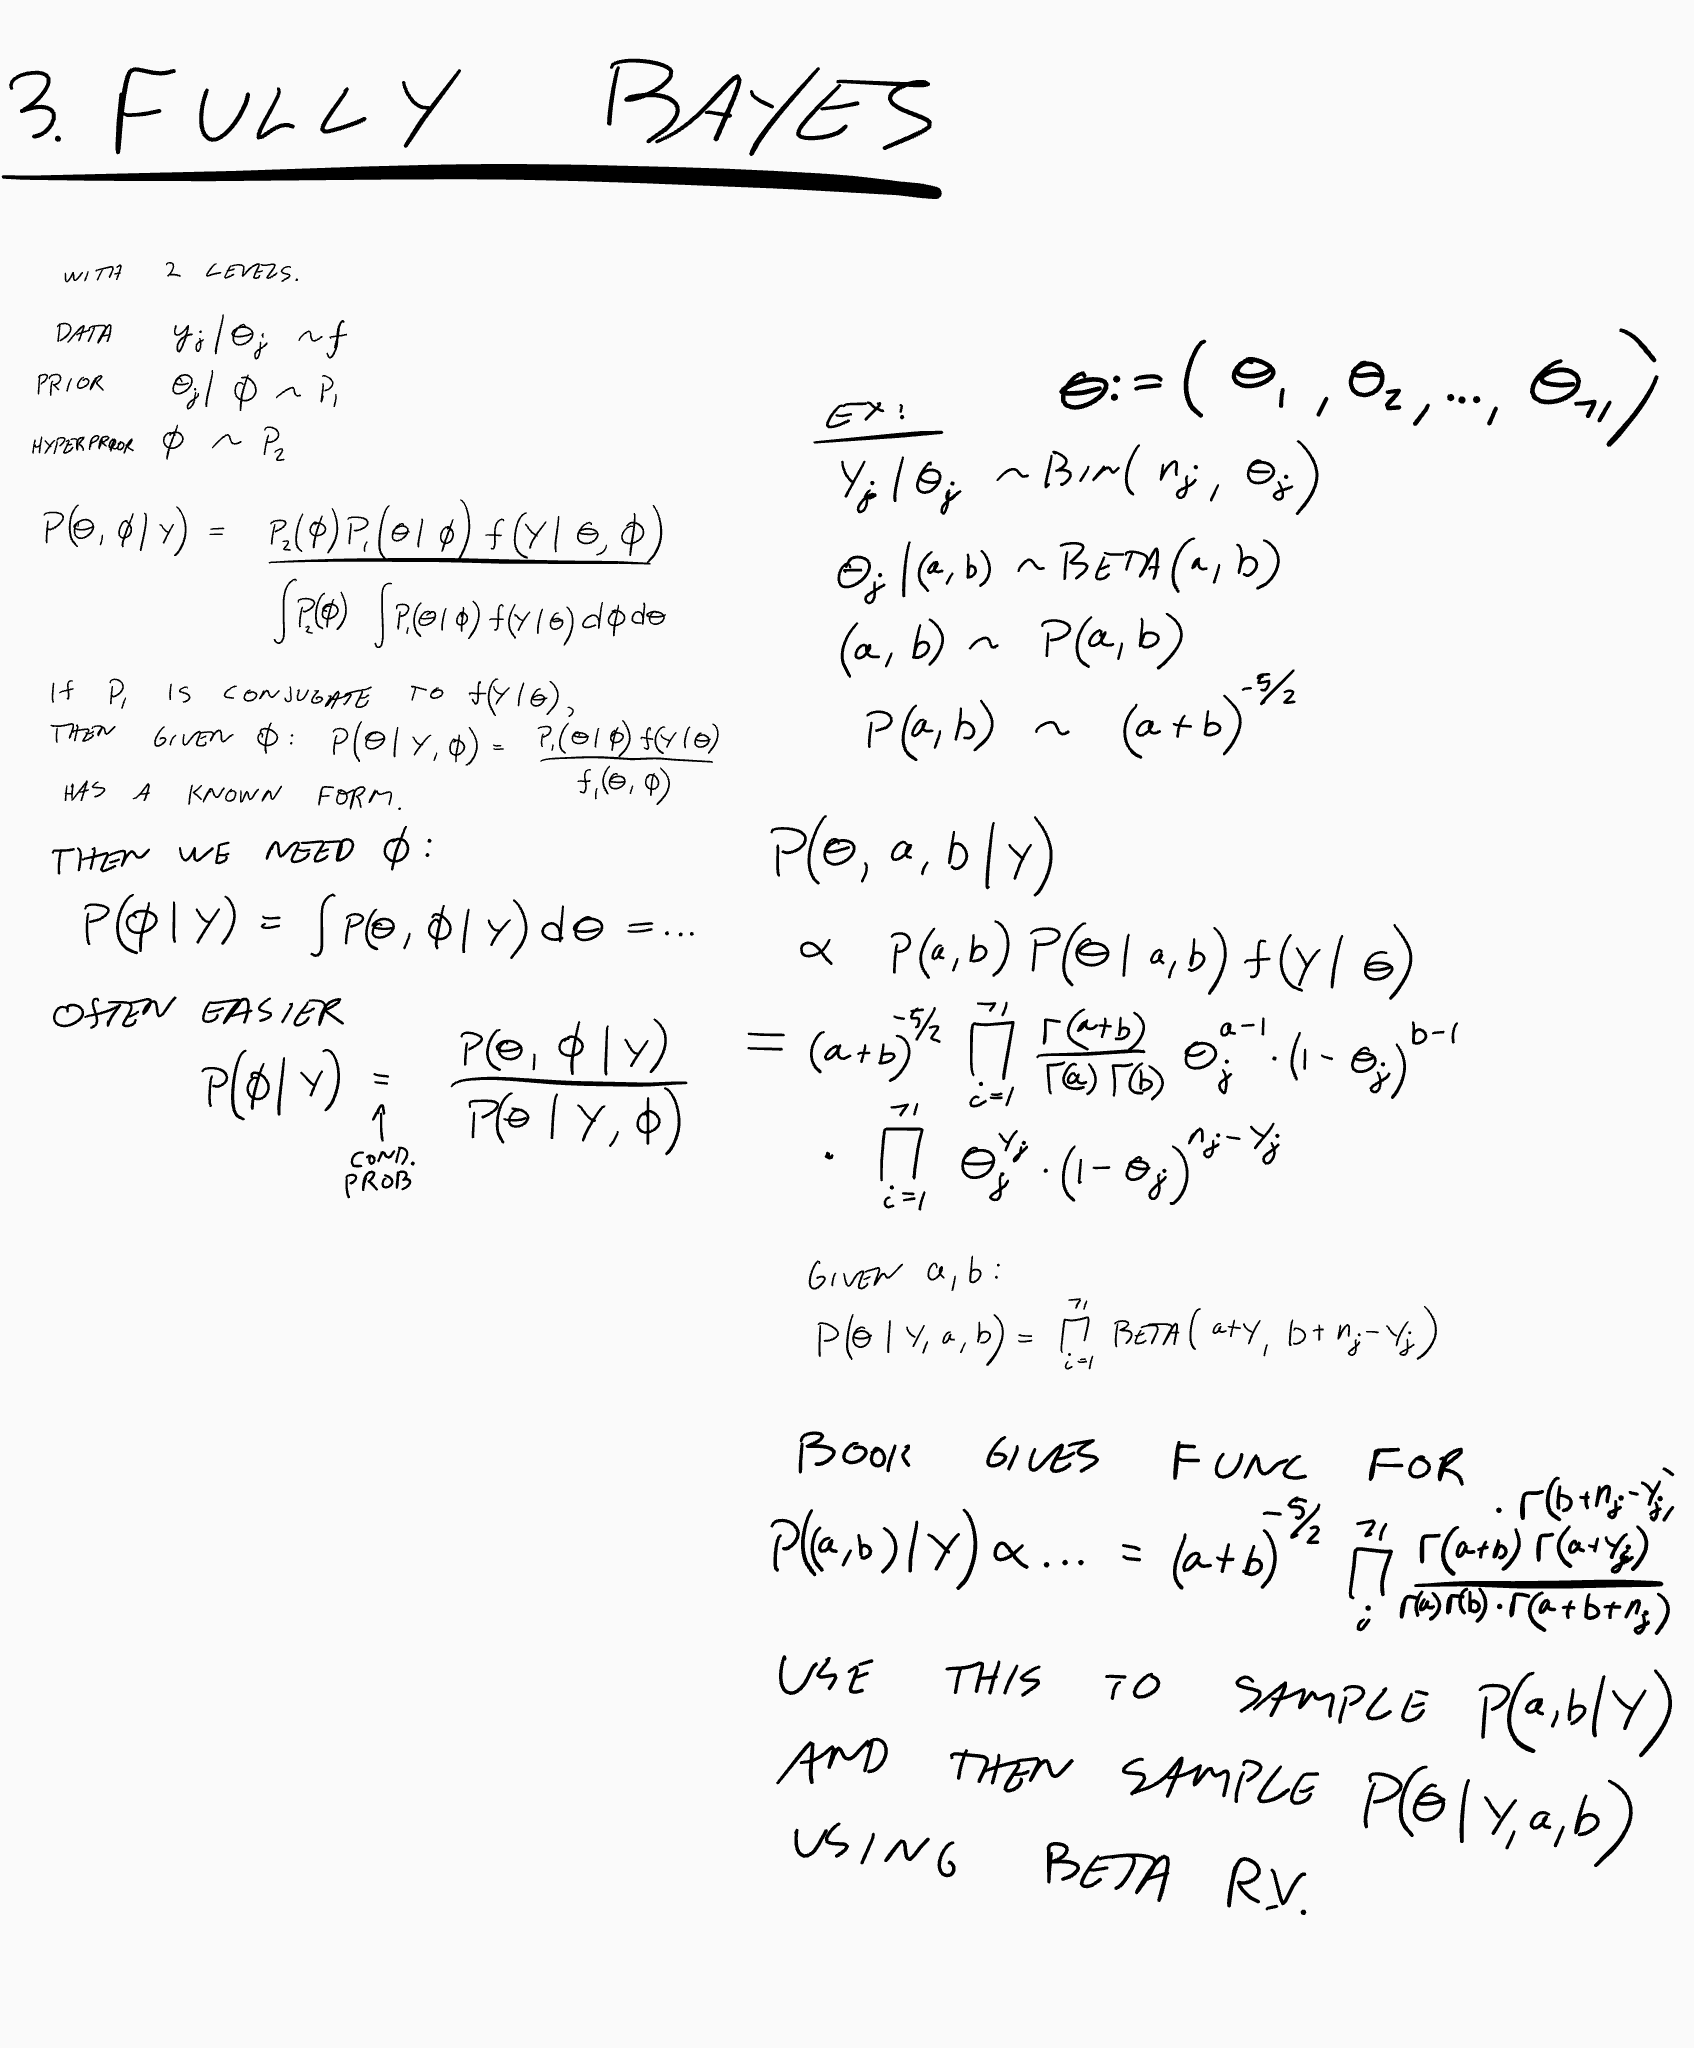 3. FULLY BAYES
WITH 2 LEVELS.
DATA y_j | θ_j ~ f
PRIOR θ_j | ϕ ~ P_1
HYPERPRIOR ϕ ~ P_2
P(θ, ϕ | Y) = P_2(ϕ) P_1(θ | ϕ) f(Y | θ, ϕ)
∫ P_2(ϕ) ∫ P_1(θ | ϕ) f(Y | θ) dϕ dθ
If P_1 IS CONJUGATE TO f(Y | θ),
THEN GIVEN ϕ: P(θ | Y, ϕ) = P_1(θ | ϕ) f(Y | θ)
f_1(θ, ϕ)
HAS A KNOWN FORM.
THEN WE NEED ϕ:
P(ϕ | Y) = ∫ P(θ, ϕ | Y) dθ = ...
OFTEN EASIER
P(ϕ | Y) = P(θ, ϕ | Y)
P(θ | Y, ϕ)
↑
COND.
PROB
θ := (θ_1, θ_2, ..., θ_71)
EX:
Y_j | θ_j ~ BIN(n_j, θ_j)
θ_j | (a, b) ~ BETA(a, b)
(a, b) ~ P(a, b)
P(a, b) ~ (a + b)^{-5/2}
P(θ, a, b | Y)
∝ P(a, b) P(θ | a, b) f(Y | θ)
= (a+b)^{-5/2} ∏_{i=1}^{71} Γ(a+b) / Γ(a) Γ(b) θ_j^{a-1} · (1 - θ_j)^{b-1}
· ∏_{i=1}^{71} θ_j^{Y_j} · (1 - θ_j)^{n_j - Y_j}
GIVEN a, b:
P(θ | Y, a, b) = ∏_{i=1}^{71} BETA(a+Y, b + n_j - Y_j)
BOOK GIVES FUNC FOR
· Γ(b + n_j - Y_j)
P((a, b) | Y) ∝ ... = (a+b)^{-5/2} ∏_j^{71} Γ(a+b) Γ(a+Y_j)
Γ(a) Γ(b) · Γ(a + b + n_j)
USE THIS TO SAMPLE P(a, b | Y)
AND THEN SAMPLE P(θ | Y, a, b)
USING BETA RV.